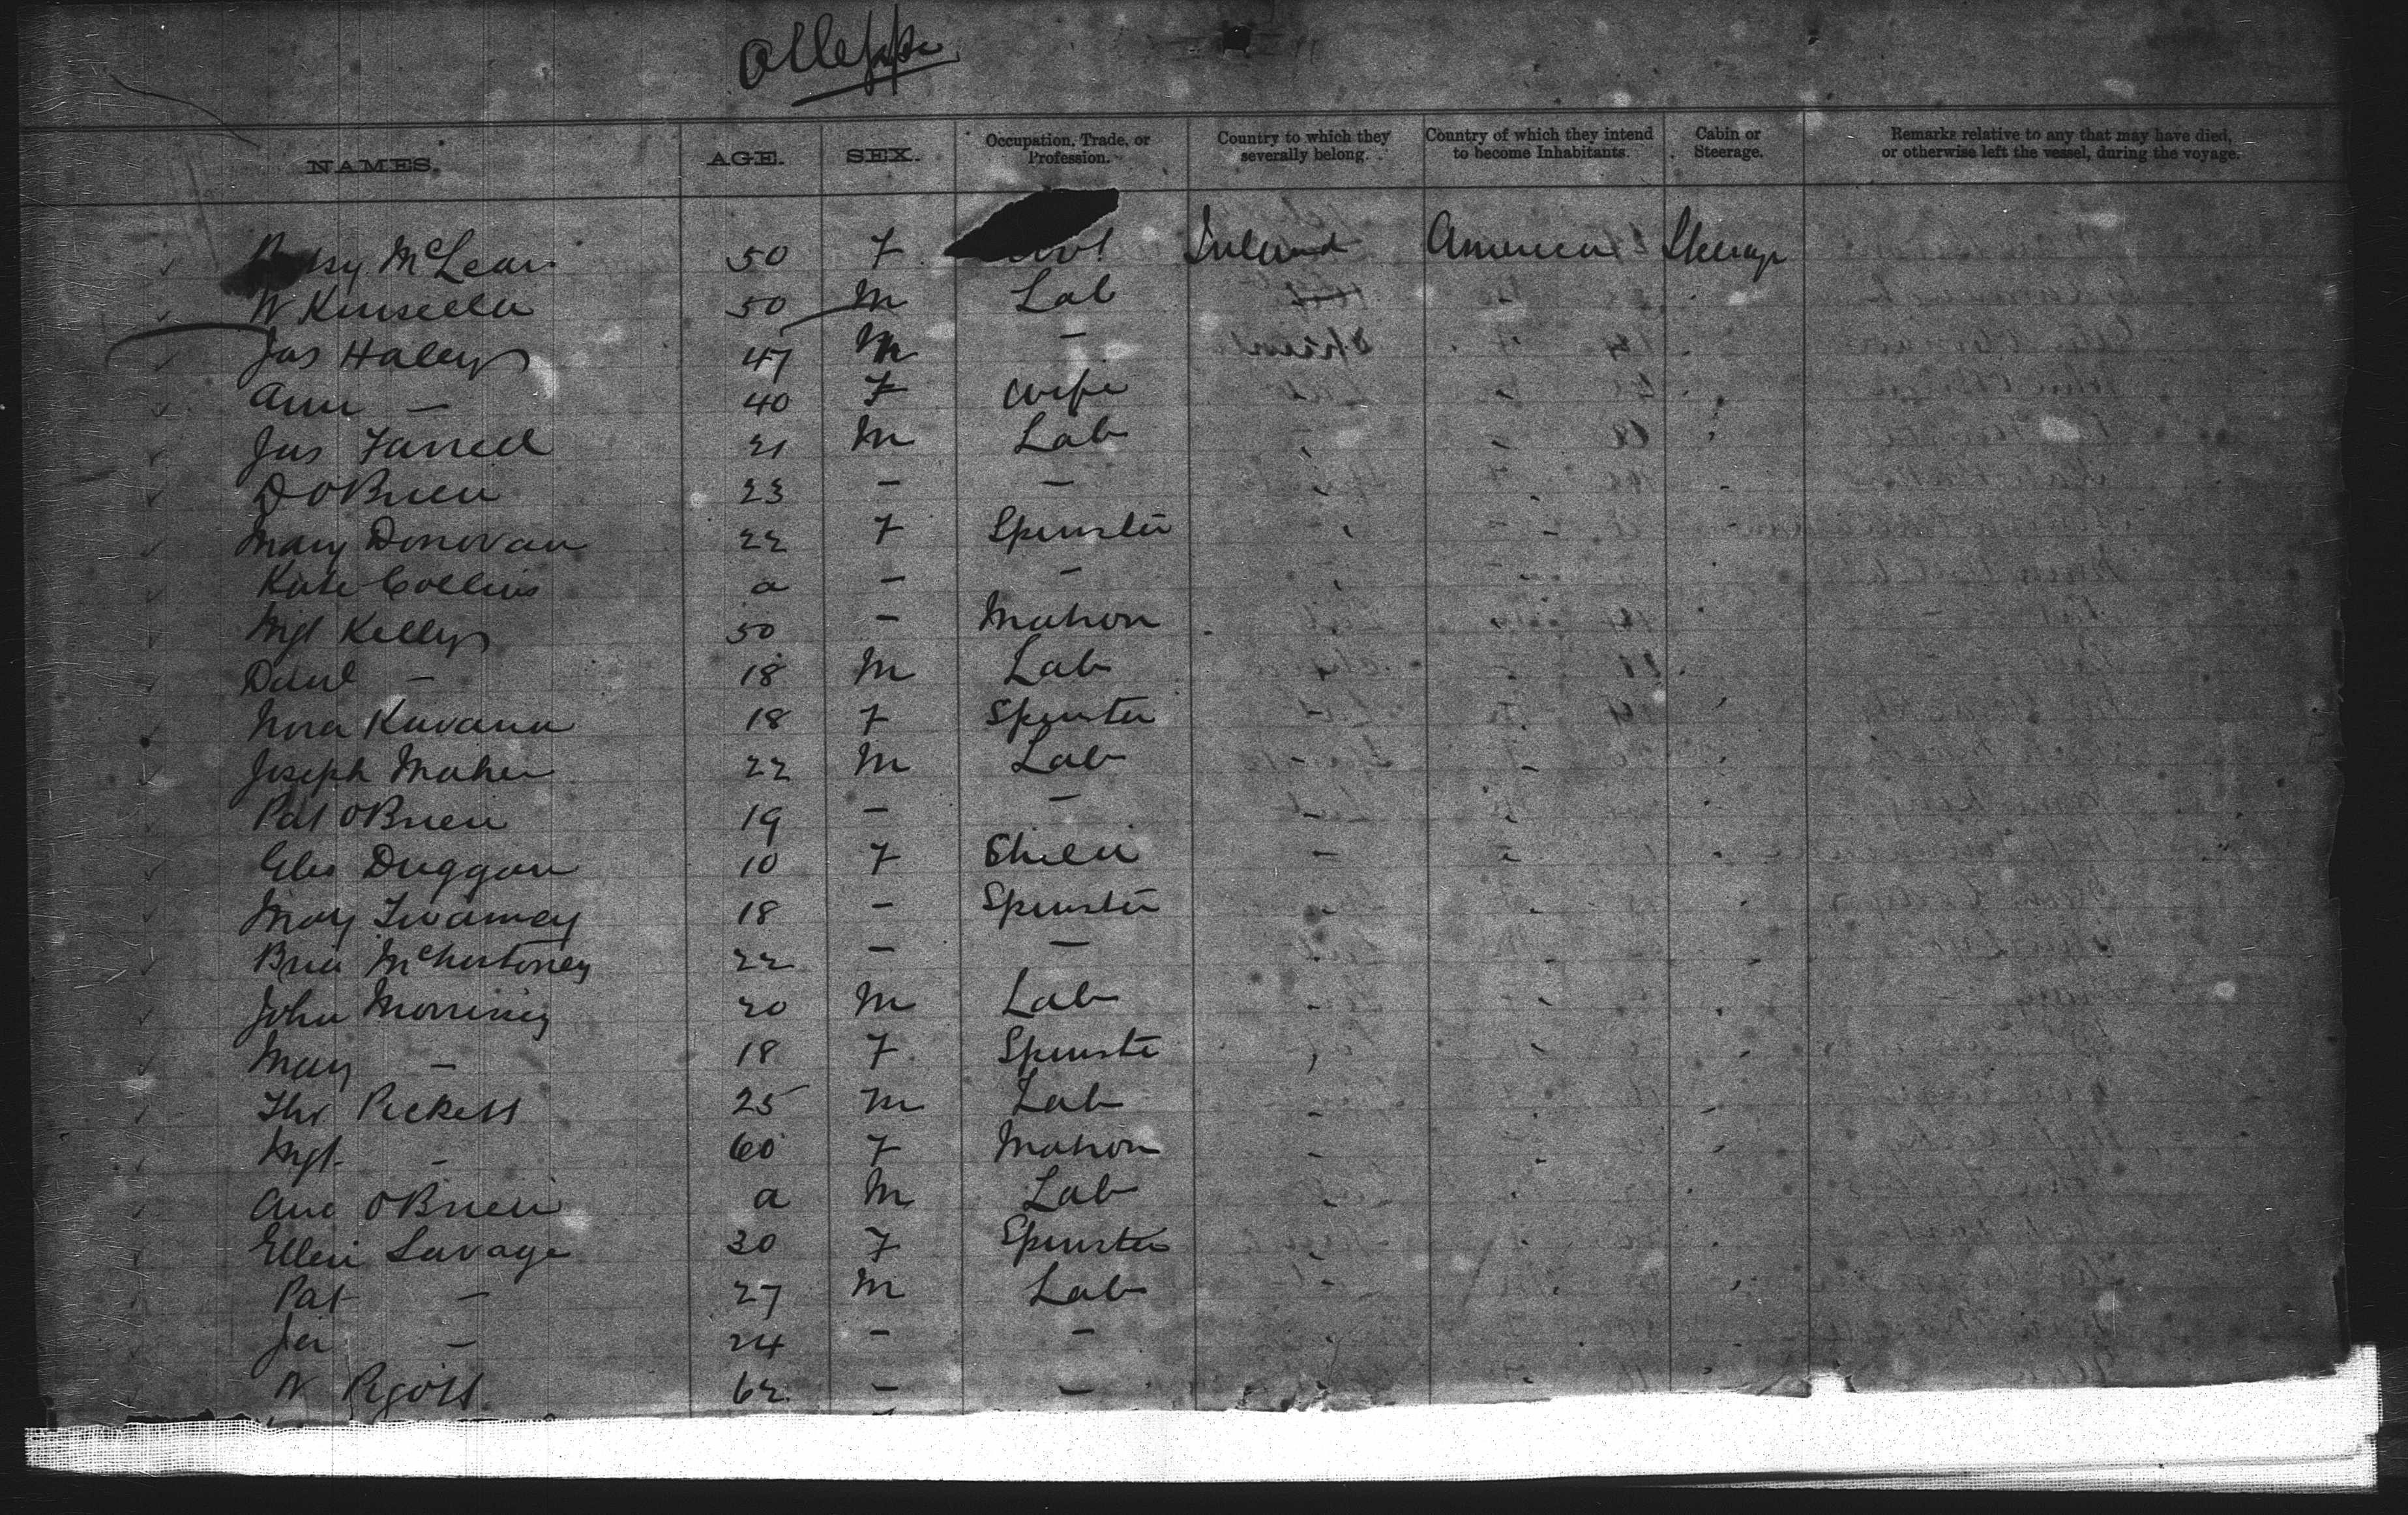 Aleppo
NAMES. AGE. SEX. Occupation, Trade, or Profession. Country to which they severally belong. Country of which they intend to become Inhabitants. Cabin or Steerage. Remarks relative to any that may have died, or otherwise left the vessel, during the voyage.
McLean 50 F Ireland America Steerage
W Kinsella 50 M Lab
Jas Haley 47 M -
Ann - 40 F Wife
Jas Farrell 21 M Lab
D O'Brien 23 - -
Mary Donovan 22 F Spinster
Kate Collins a - -
Mgt Kelly 50 - Matron
Danl - 18 M Lab
Nora Kavana 18 F Spinster
Joseph Maher 22 M Lab
Pat O'Brien 19 - -
Duggan 10 F
May Twamey 18 - Spinster
22 - -
John 20 M Lab
May - 18 F Spinste
Thos Pickett 25 M Lab
Mgt - 60 F Matron
O'Brien a M Lab
Ellen Savage 30 F Spinster
Pat - 27 M Lab
Jer - 24 - -
W Pigott 62 - -